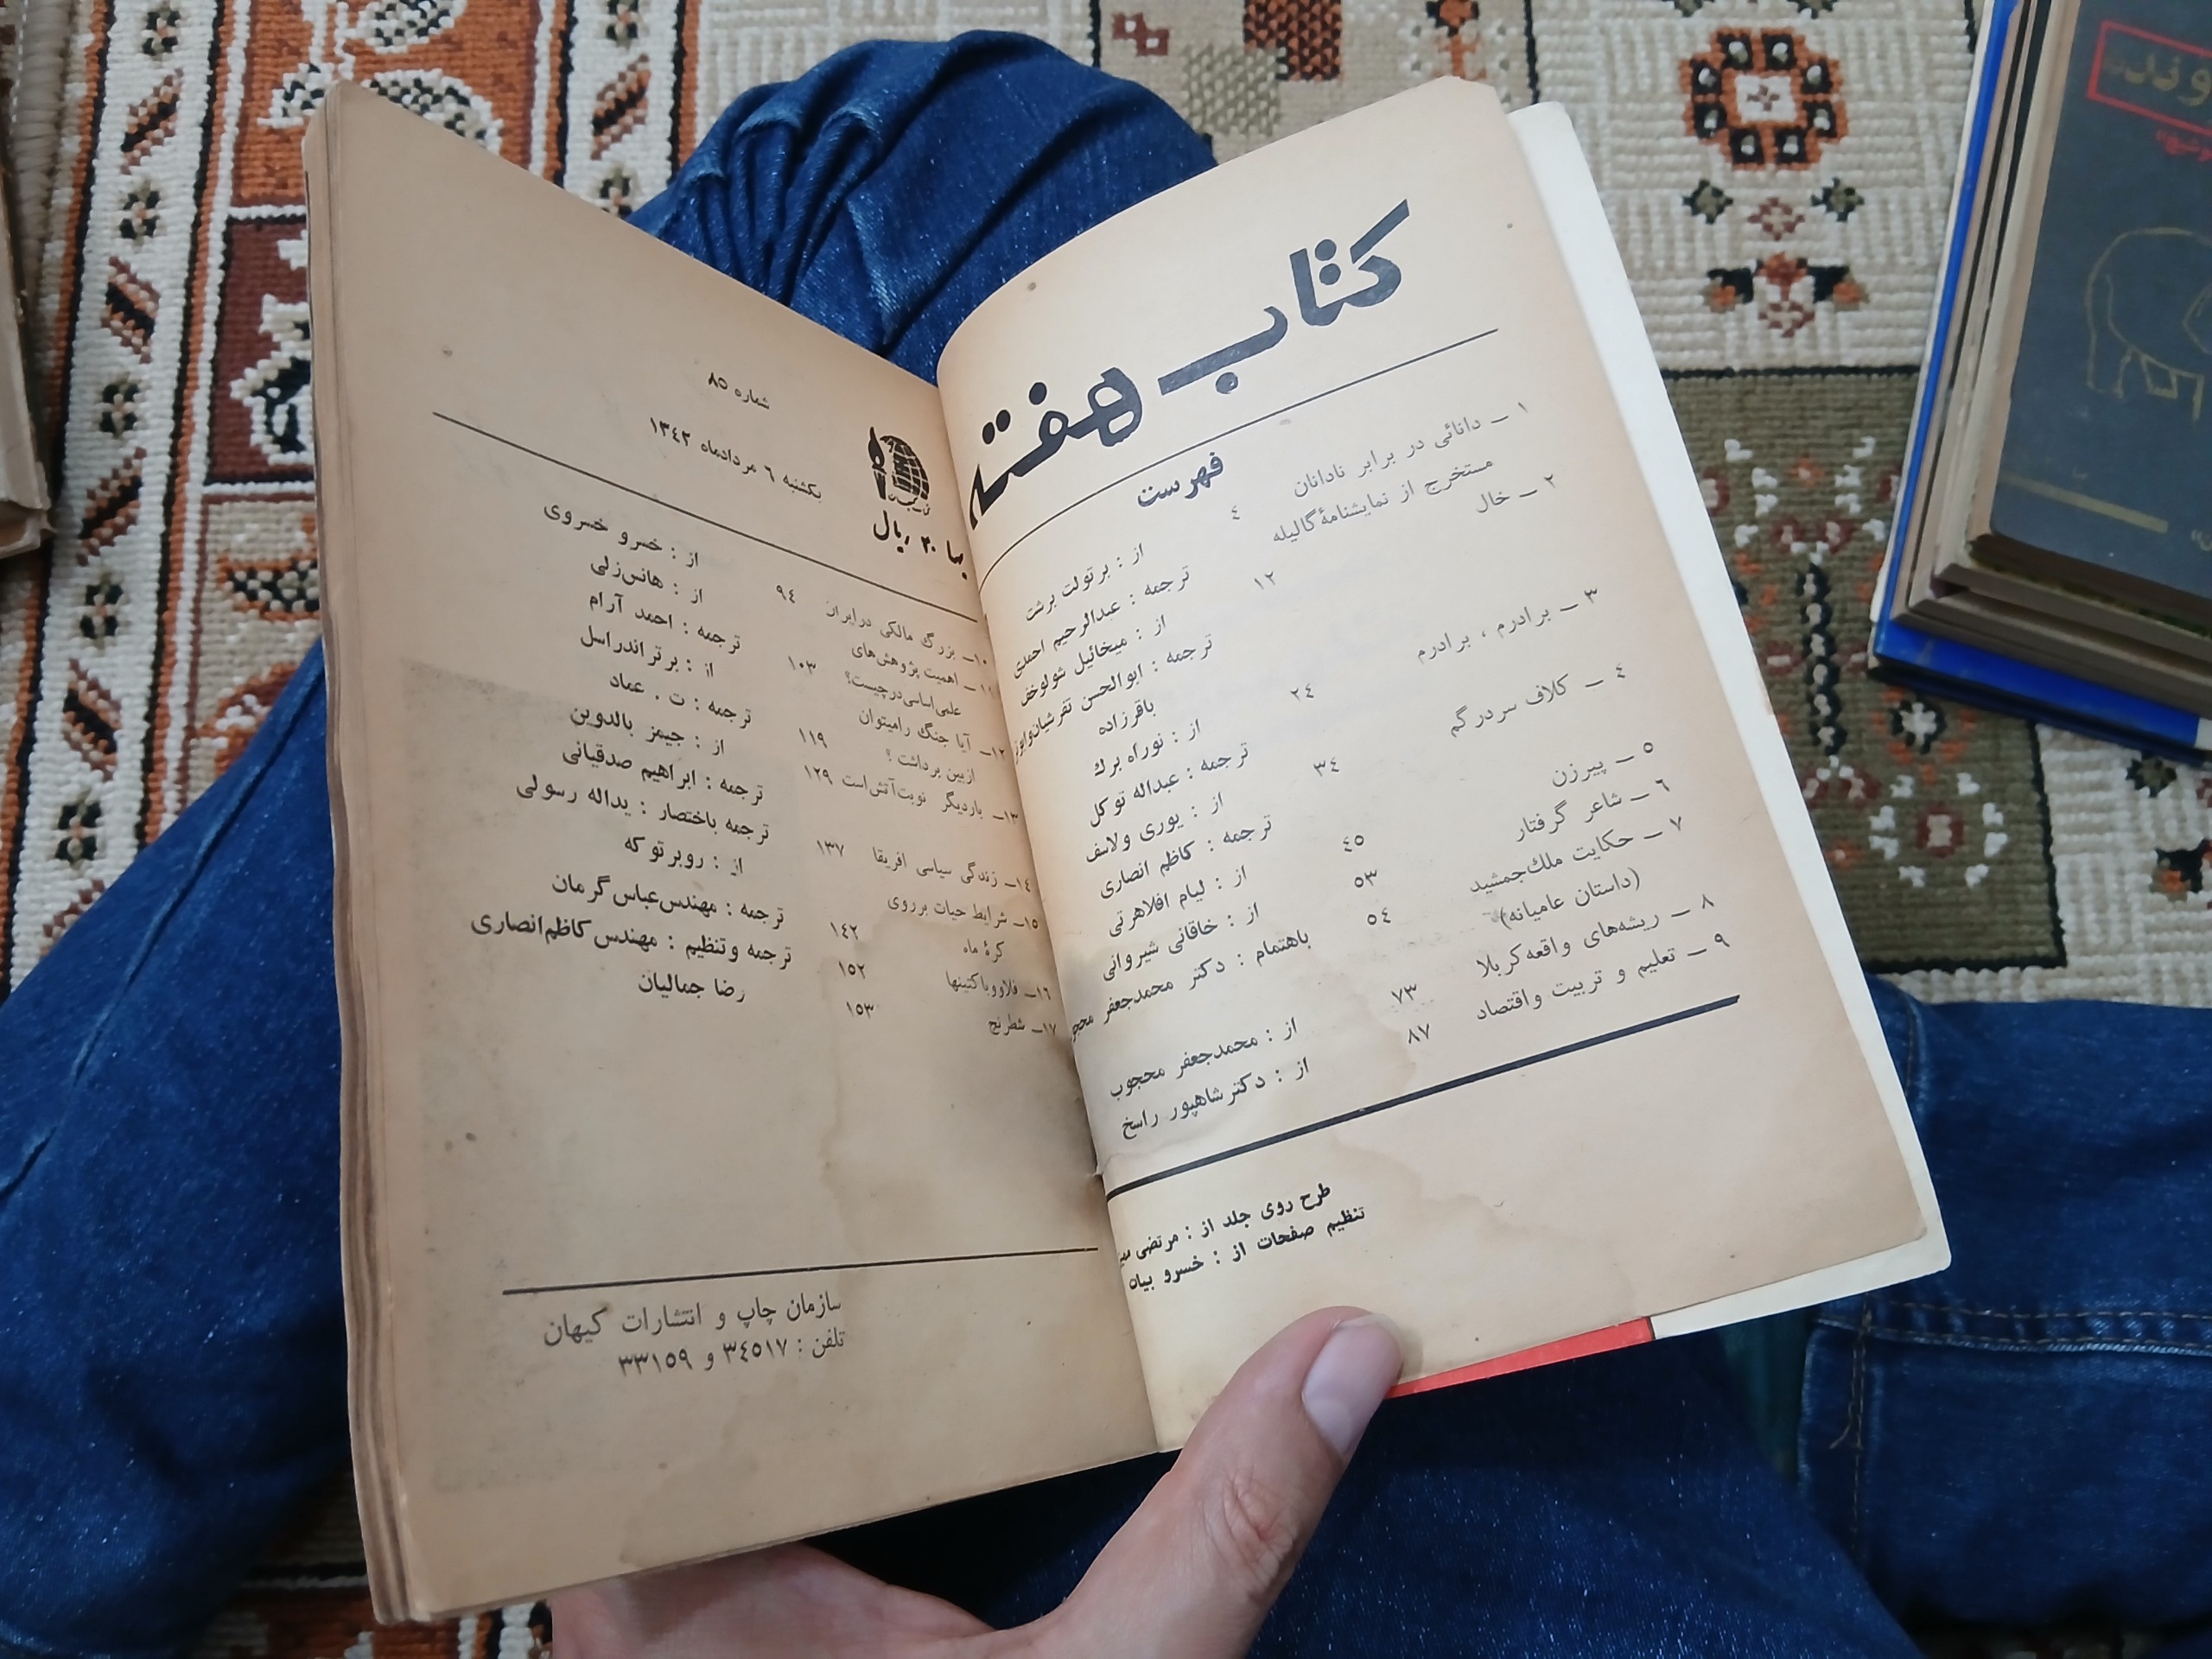 کتاب هفته
فهرست
۱ ــ دانائی در برابر نادانان
مستخرج از نمایشنامهٔ گالیله ٤
از : برتولت برشت
ترجمه : عبدالرحیم احمدی
۲ ــ خال ۱۲
از : میخائیل شولوخف
ترجمه : ابوالحسن تفرشیان و
باقرزاده
۳ ــ برادرم ، برادرم ۲٤
از : نوراه برك
ترجمه : عبداله توکل
٤ ــ کلاف سردرگم ۳٤
از : یوری ولاسف
ترجمه : کاظم انصاری
٥ ــ پیرزن ٤٥
از : لیام افلاهرتی
٦ ــ شاعر گرفتار ٥۳
از : خاقانی شیروانی
۷ ــ حکایت ملك‌جمشید
(داستان عامیانه) ٥٤
باهتمام : دکتر محمدجعفر
۸ ــ ریشه‌های واقعه کربلا ۷۳
از : محمدجعفر محجوب
۹ ــ تعلیم و تربیت و اقتصاد ۸۷
از : دکتر شاهپور راسخ
طرح روی جلد از : مرتضی
تنظیم صفحات از : خسرو بیات
شماره ۸٥
یکشنبه ٦ مردادماه ۱۳٤۲
بها ۲۰ ریال
۱۰ــ بزرگ مالکی در ایران ۹٤
از : خسرو خسروی
۱۱ ــ اهمیت پژوهش‌های
علمی‌اساسی‌درچیست؟ ۱۰۳
از : هانس‌زلی
ترجمه : احمد آرام
۱۲ــ آیا جنگ رامیتوان
ازبین برداشت ؟ ۱۱۹
از : برتراندراسل
ترجمه : ت . عماد
۱۳ــ باردیگر نوبت‌آتش‌است ۱۲۹
از : جیمز بالدوین
ترجمه : ابراهیم صدقیانی
۱٤ــ زندگی سیاسی افریقا ۱۳۷
ترجمه باختصار : یداله رسولی
۱٥ــ شرایط حیات برروی
کرهٔ ماه ۱٤۲
از : روبرتو که
ترجمه : مهندس‌عباس‌گرمان
۱٦ــ فلاووباکتینها ۱٥۲
ترجمه وتنظیم : مهندس‌کاظم‌انصاری
۱۷ــ شطرنج ۱٥۳
رضا جمالیان
سازمان چاپ و انتشارات کیهان
تلفن : ۳٤٥۱۷ و ۳۳۱٥۹